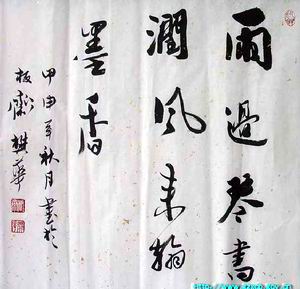 雨過琴書
潤風來翰
墨香
甲申年秋月書於
樊華